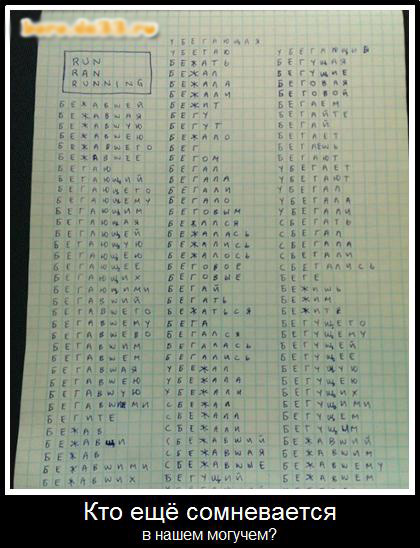 RUN
RAN
RUNNING
БЕЖАВШЕЙ
БЕЖАВШАЯ
БЕЖАВШУЮ
БЕЖАВШЕЮ
БЕЖАВШЕГО
БЕЖАВШЕЕ
БЕГАЮ
БЕГАЮЩИЙ
БЕГАЮЩЕГО
БЕГАЮЩЕМУ
БЕГАЮЩИМ
БЕГАЮЩАЯ
БЕГАЮЩЕЙ
БЕГАЮЩУЮ
БЕГАЮЩЕЮ
БЕГАЮЩЕЕ
БЕГАЮЩИХ
БЕГАЮЩИМИ
БЕГАВШИЙ
БЕГАВШЕГО
БЕГАВШЕМУ
БЕГАВШЕВО
БЕГАВШИМ
БЕГАВШЕМ
БЕГАВШАЯ
БЕГАВШЕЮ
БЕГАВШУЮ
БЕГАВШЕМИ
БЕГИТЕ
БЕЖАВ
БЕЖАВШИ
БЕЖАВ
БЕЖАВШИМИ
БЕЖАВШИХ
УБЕГАЮЩАЯ
УБЕГАЮ
БЕЖАТЬ
БЕЖАЛ
БЕЖАЛА
БЕЖАЛИ
БЕЖИТ
БЕГУ
БЕГУТ
БЕЖАЛО
БЕГ
БЕГОМ
БЕГАЛ
БЕГАЛА
БЕГАЛИ
БЕГАЛО
БЕГОВЫМ
БЕЖАЛСЯ
БЕЖАЛАСЬ
БЕЖАЛИСЬ
БЕЖАЛОСЬ
БЕГОВОЕ
БЕГОВЫЕ
БЕГАЙ
БЕГАТЬ
БЕЖАТЬСЯ
БЕГА
БЕГАЛСЯ
БЕГАЛАСЬ
БЕГАЛИСЬ
УБЕЖАЛ
УБЕЖАЛА
УБЕЖАЛИ
СБЕЖАЛ
СБЕЖАЛА
СБЕЖАЛИ
СБЕЖАВШИЙ
СБЕЖАВШАЯ
СБЕЖАВШЫЕ
УБЕГАЮЩИЙ
УБЕГАЮЩИЕ
БЕГУЩАЯ
БЕГУЩИЕ
БЕГОВАЯ
БЕГОВОЙ
БЕГАЕМ
БЕГАЙТЕ
БЕГАЙ
БЕГАЕТ
БЕГАЕШЬ
БЕГАЮТ
УБЕГАЕТ
УБЕГАЮТ
УБЕГАЛ
УБЕГАЛА
УБЕГАЛИ
СБЕГАТЬ
СБЕГАЛ
СБЕГАЛА
СБЕГАЛИ
СБЕГАЛИСЬ
БЕГЕ
БЕЖИШЬ
БЕЖИМ
БЕЖИТЕ
БЕГУЩЕГО
БЕГУЩЕМУ
БЕГУЩЕЙ
БЕГУЩЕЕ
БЕГУЩУЮ
БЕГУЩЕЮ
БЕГУЩИХ
БЕГУЩИМИ
БЕГУЩЕМ
БЕГУЩЫМ
БЕЖАВШИЙ
БЕЖАВШИМ
БЕЖАВШЕМУ
БЕЖАВШЕМ
Кто ещё сомневается
в нашем могучем?